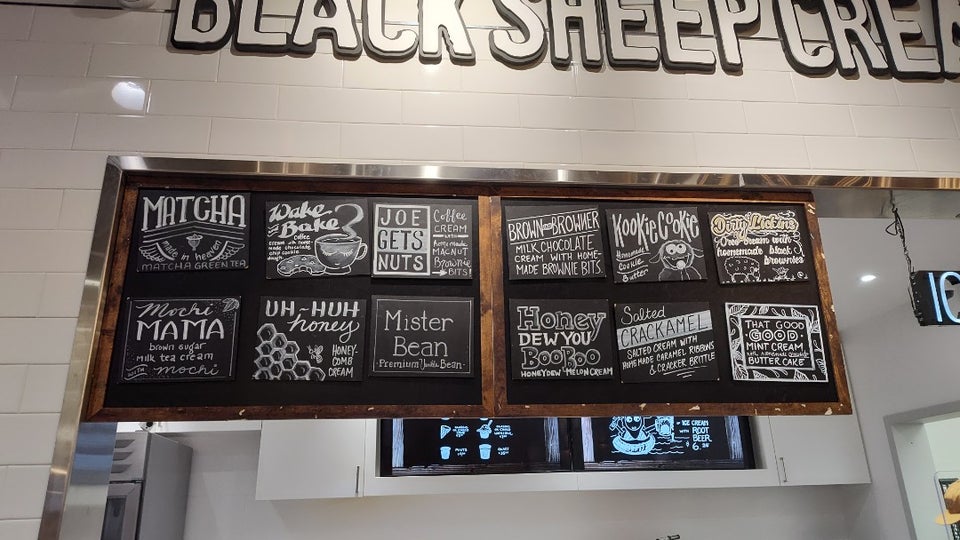 BLACK SHEEP CREA
MATCHA
made in heaven
MATCHA GREEN TEA
Wake
Bake
coffee
cream with home-
made chocolate
chip cookie
JOE
GETS
NUTS
Coffee
CREAM
WITH
HOMEMADE
MACNUT
Brownie
BITS!
BROWN AND BROWNER
MILK CHOCOLATE
CREAM WITH HOME-
MADE BROWNIE BITS
KOOKIE COOKIE
Homemade
Cookie
Butter
Dirty Lickins
Oreo cream with
homemade black
brownies
Mochi
MAMA
brown sugar
milk tea cream
WITH mochi
UH-HUH
honey
HONEY-
COMB
CREAM
Mister
Bean
Premium Vanilla Bean
Honey
DEW YOU
BOOBOO
HONEYDEW MELON CREAM
Salted
CRACKAMEL
SALTED CREAM WITH
HOMEMADE CARAMEL RIBBONS
& CRACKER BRITTLE
THAT GOOD
GOOD
MINT CREAM
with homemade chocolate
BUTTER CAKE
IC
ICE
CREAM
WITH ROOT
BEER
$6